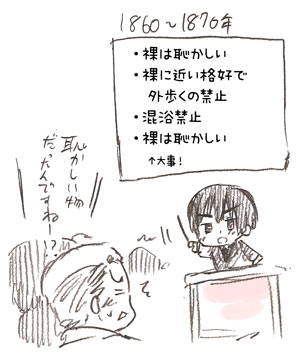 1860~1870年
・裸は恥かしい
・裸に近い格好で
外歩くの禁止
・混浴禁止
・裸は恥かしい
↑大事!
恥かしい物
だったんですねー!?